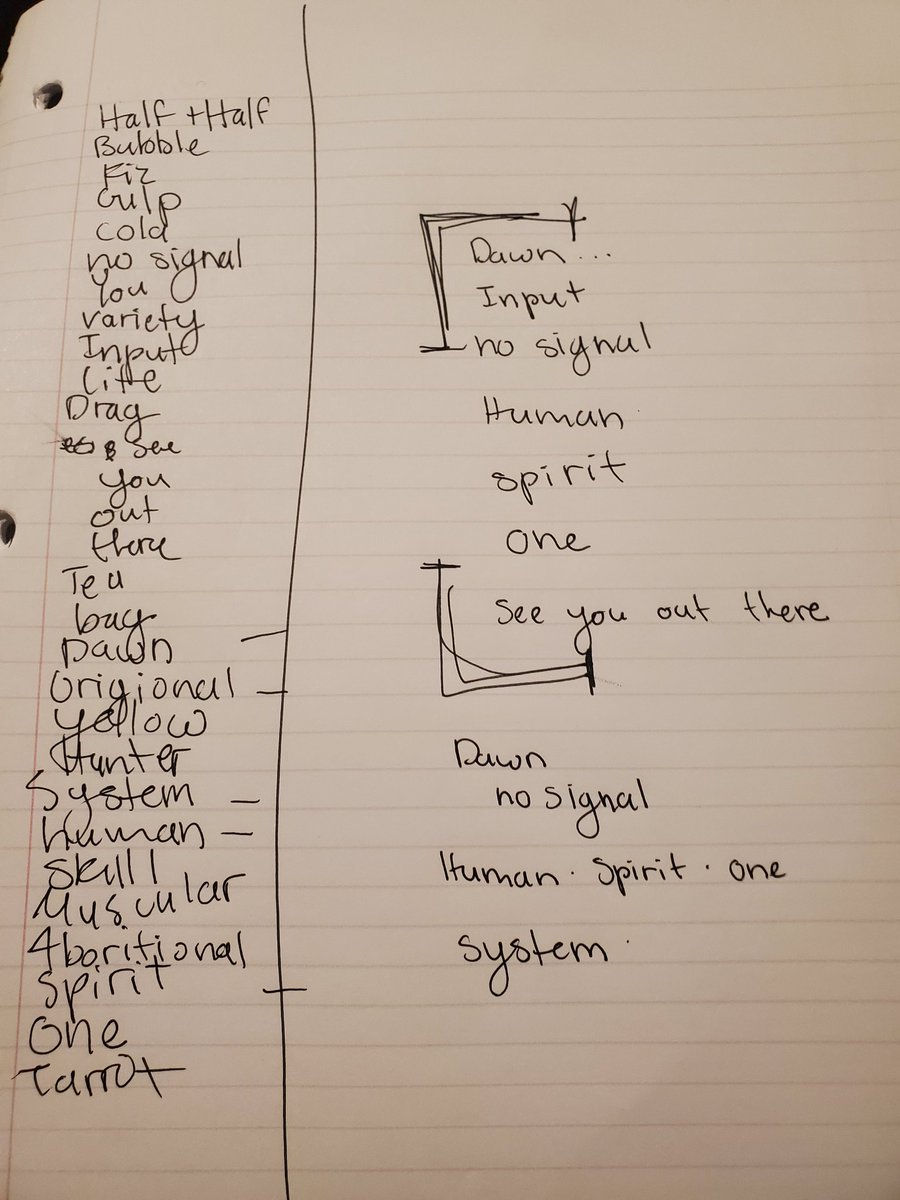 Half + Half
Bubble
Fiz
Gulp
cold
no signal
You
variety
Input
Drag
See
you
out
there
Tea
bag
Dawn
Origional
yellow
Hunter
System
human
Skill
Muscular
Aboritional
Spirit
One
Tarrot
Dawn...
Input
no signal
Human
spirit
one
See you out there
Dawn
no signal
Human · Spirit · one
system